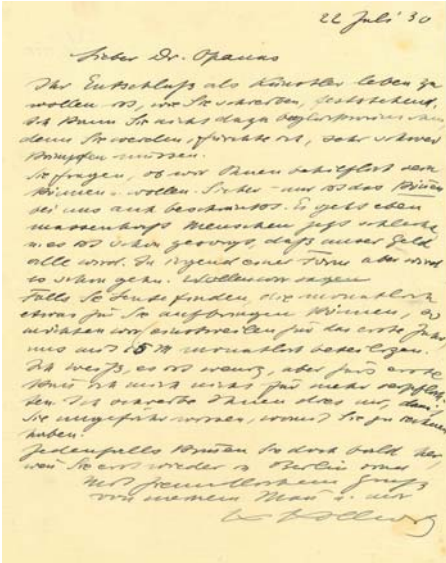 22 Juli 30
Lieber Dr. Spanus
Ihr Entschluß als Künstler leben zu
wollen ist, wie Sie schreiben, feststehend.
Ich kann Sie nicht dazu beglückwünschen
denn Sie werden, fürchte ich, sehr schwer
kämpfen müssen.
Sie fragen, ob wir Ihnen behilflich sein
können u. wollen. Sicher - nur ist das Können
bei uns auch beschränkt. Es geht eben
massenhaft Menschen jetzt schlecht
u. es ist schon gesorgt, daß unser Geld
alle wird. In irgend einer Form aber wird
es schon gehn. Wollen wir sagen
Falls Sie Leute finden, die monatlich
etwas für Sie aufbringen können, so
möchten wir einstweilen für das erste Jahr
uns mit 15 M monatlich beteiligen.
Ich weiß, es ist wenig, aber fürs erste
kann ich mich nicht für mehr verpflich-
ten. Ich schreibe Ihnen dies nur, damit
Sie ungefähr wissen, womit Sie zu rechnen
haben.
Jedenfalls kommen Sie doch bald her,
wenn Sie erst wieder in Berlin sind
Mit freundlichem Gruß
von meinem Mann u. mir
K Kollwitz